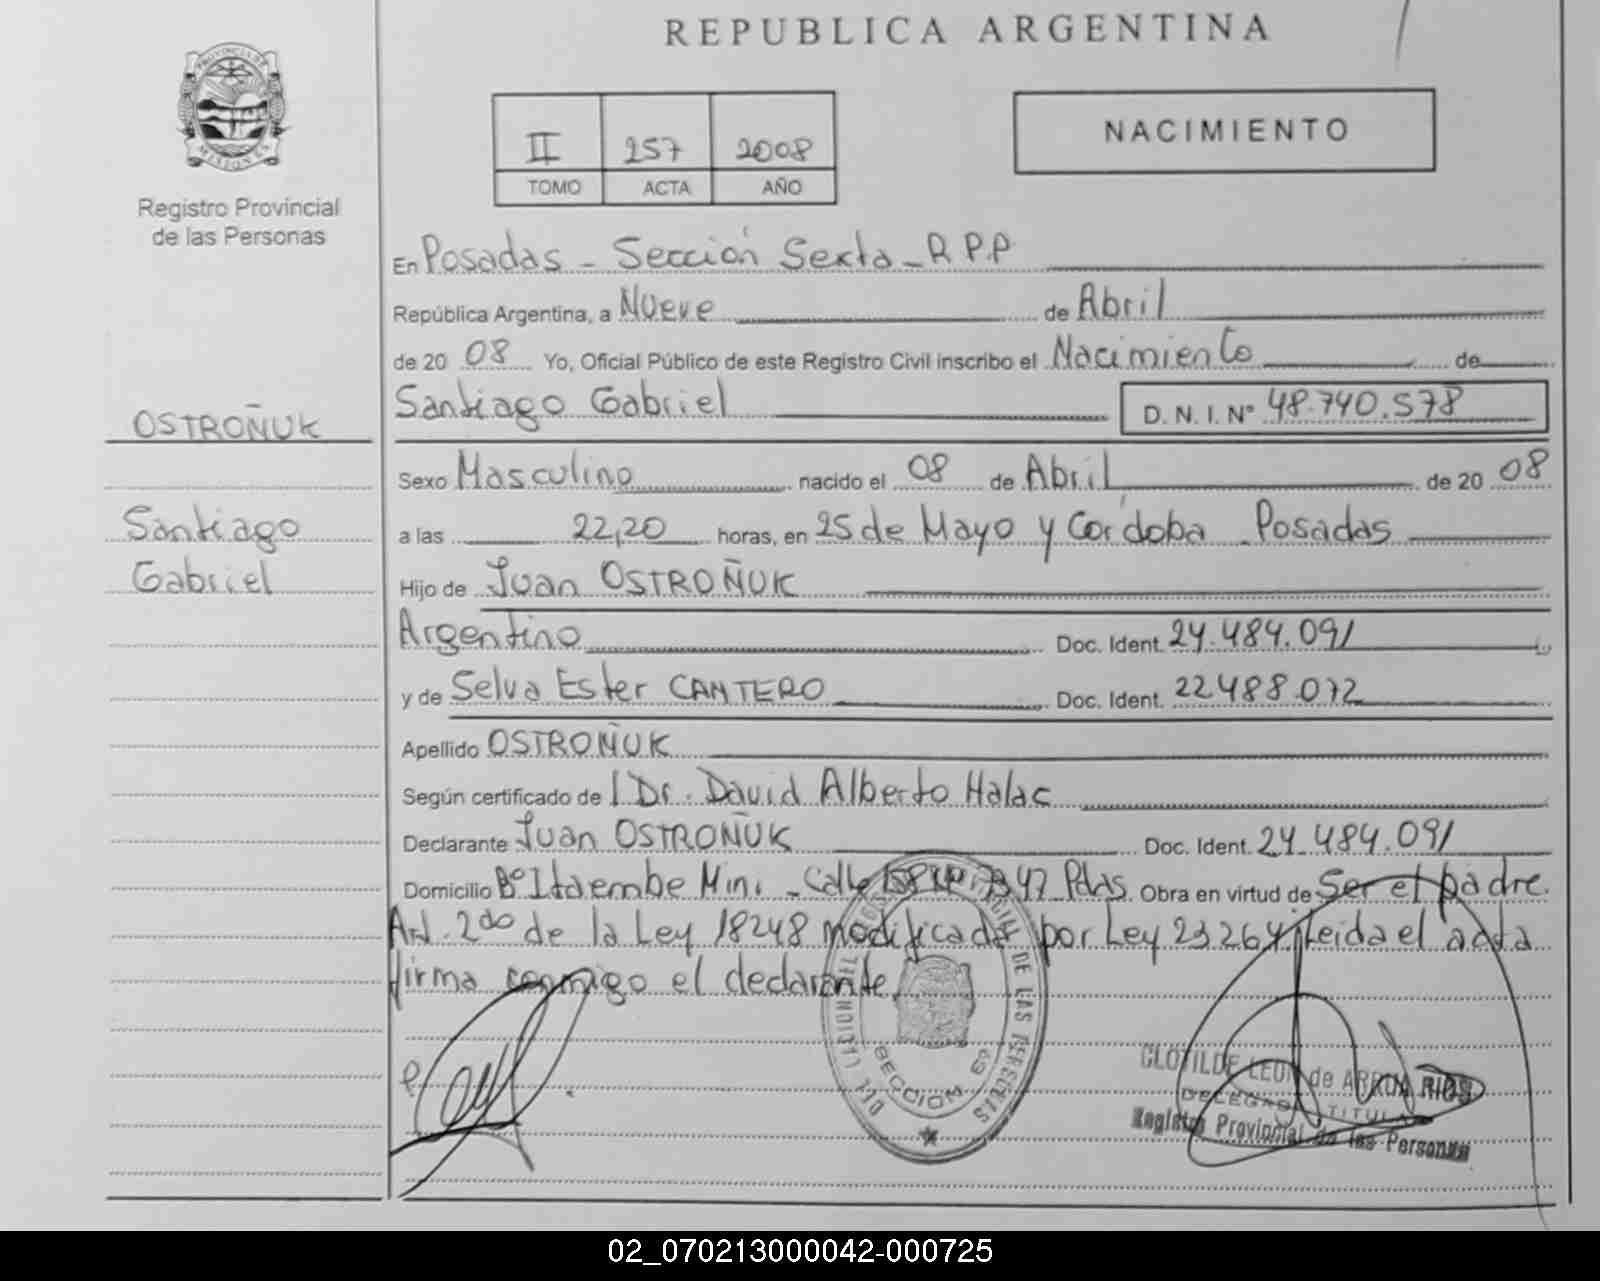 REPUBLICA ARGENTINA
PROVINCIA DE
MISIONES
Registro Provincial
de las Personas
II 257 2008
TOMO ACTA AÑO
NACIMIENTO
En Posadas - Sección Sexta - R.P.P
República Argentina, a Nueve de Abril
de 20 08 Yo, Oficial Público de este Registro Civil inscribo el Nacimiento de
Santiago Gabriel D.N.I. Nº 48.740.578
OSTROÑUK
Santiago
Gabriel
Sexo Masculino nacido el 08 de Abril de 20 08
a las 22,20 horas, en 25 de Mayo y Córdoba - Posadas
Hijo de Juan OSTROÑUK
Argentino Doc. Ident. 24.484.091
y de Selva Ester CANTERO Doc. Ident. 22.488.072
Apellido OSTROÑUK
Según certificado de l Dr. David Alberto Halac
Declarante Juan OSTROÑUK Doc. Ident. 24.484.091
Domicilio Bº Itaembe Mini - Calle Pdas. Obra en virtud de Ser el padre.
Art. 2do de la Ley 18248 modificada por Ley 23264. Leida el acta
firma conmigo el declarante.
SECCION 6ª
DE LAS PERSONAS
CLOTILDE LEON de ARRUA RIOS
DELEGADA TITULAR
Registro Provincial de las Personas
02_070213000042-000725